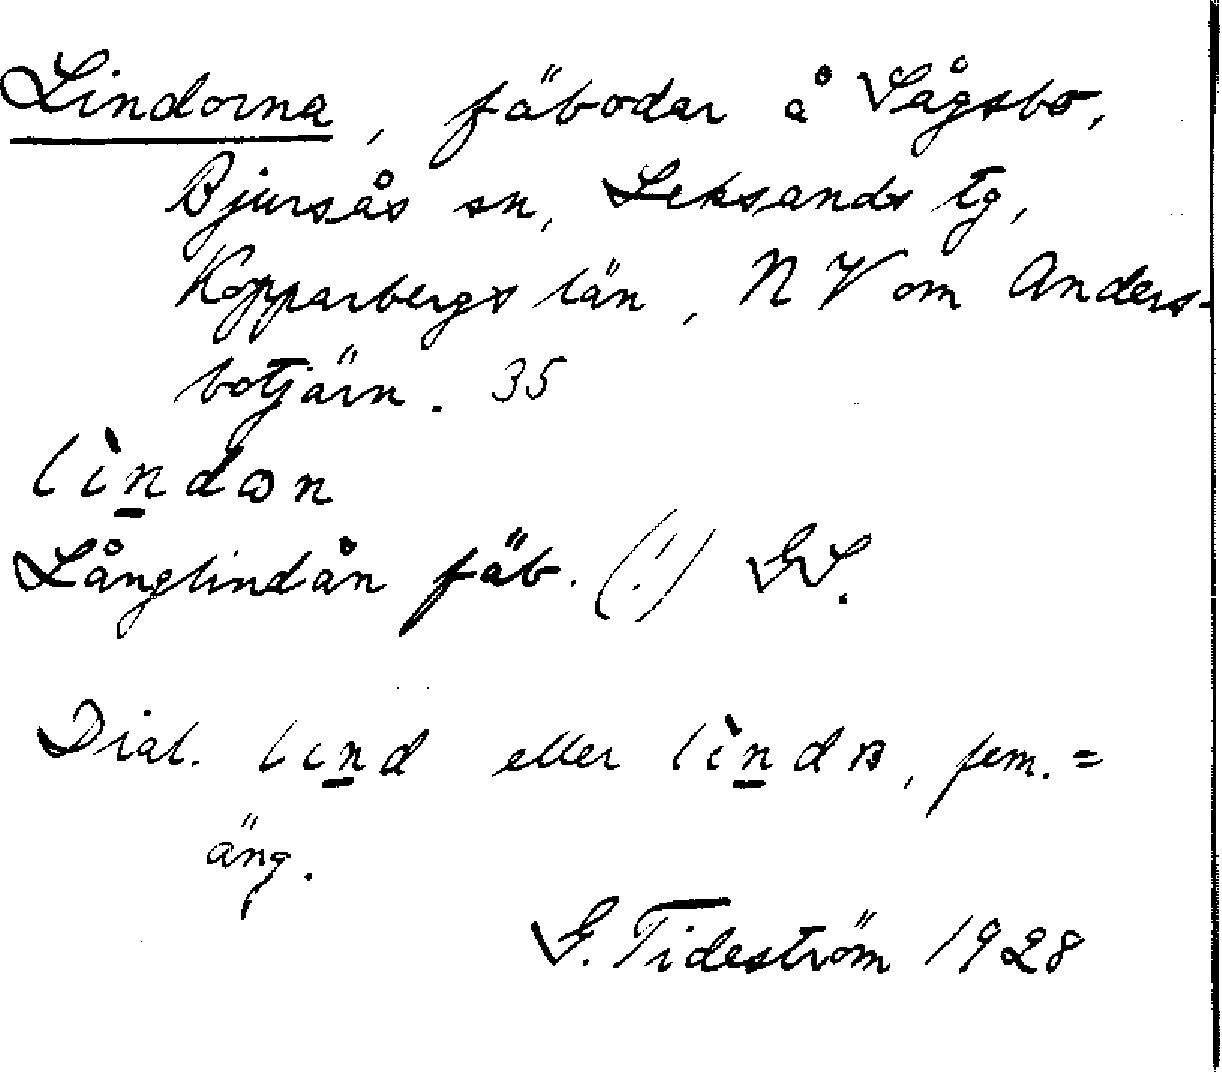 Lindorna, fäbodar å Sågsbo,
Bjursås sn, Leksands tg,
Kopparbergs län, NV om Anders-
botjärn. 35
lìndωn
Långlindån fäb. (!) GS.
Dial. lind eller lìnda, fem. =
äng.
G. Tideström 1928